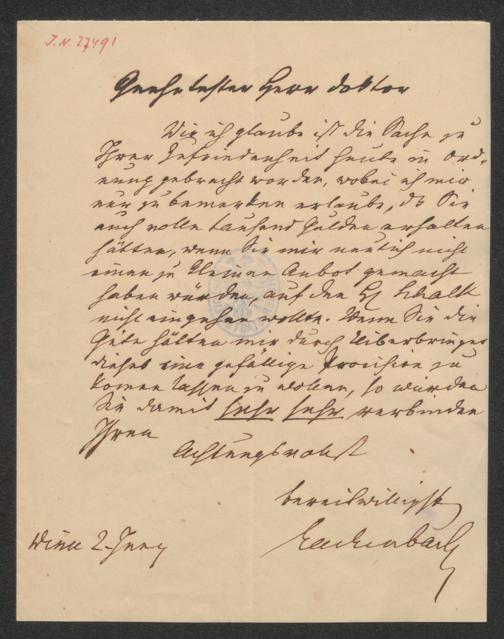 I.N. 27491
Geehrtester Herr Doktor
Wie ich glaube ist die Sache zu
Ihrer Zufriedenheit heute in Ord-
nung gebracht worden, wobei ich mir
nur zu bemerken erlaube, dß Sie
auch volle tausend Gulden erhalten
hätten, wenn Sie mir neulich nicht
einen zu kleinen Anbot gemacht
haben würden, auf den H Schalk
nicht eingehen wollte. Wenn Sie die
Güte hätten mir durch Überbringer
dieses eine gefällige Provision zu
komen lassen zu wollen, so würden
Sie damit sehr sehr verbinden
Ihren
Achtungsvollst
bereitwilligst
Wien 2. Juny